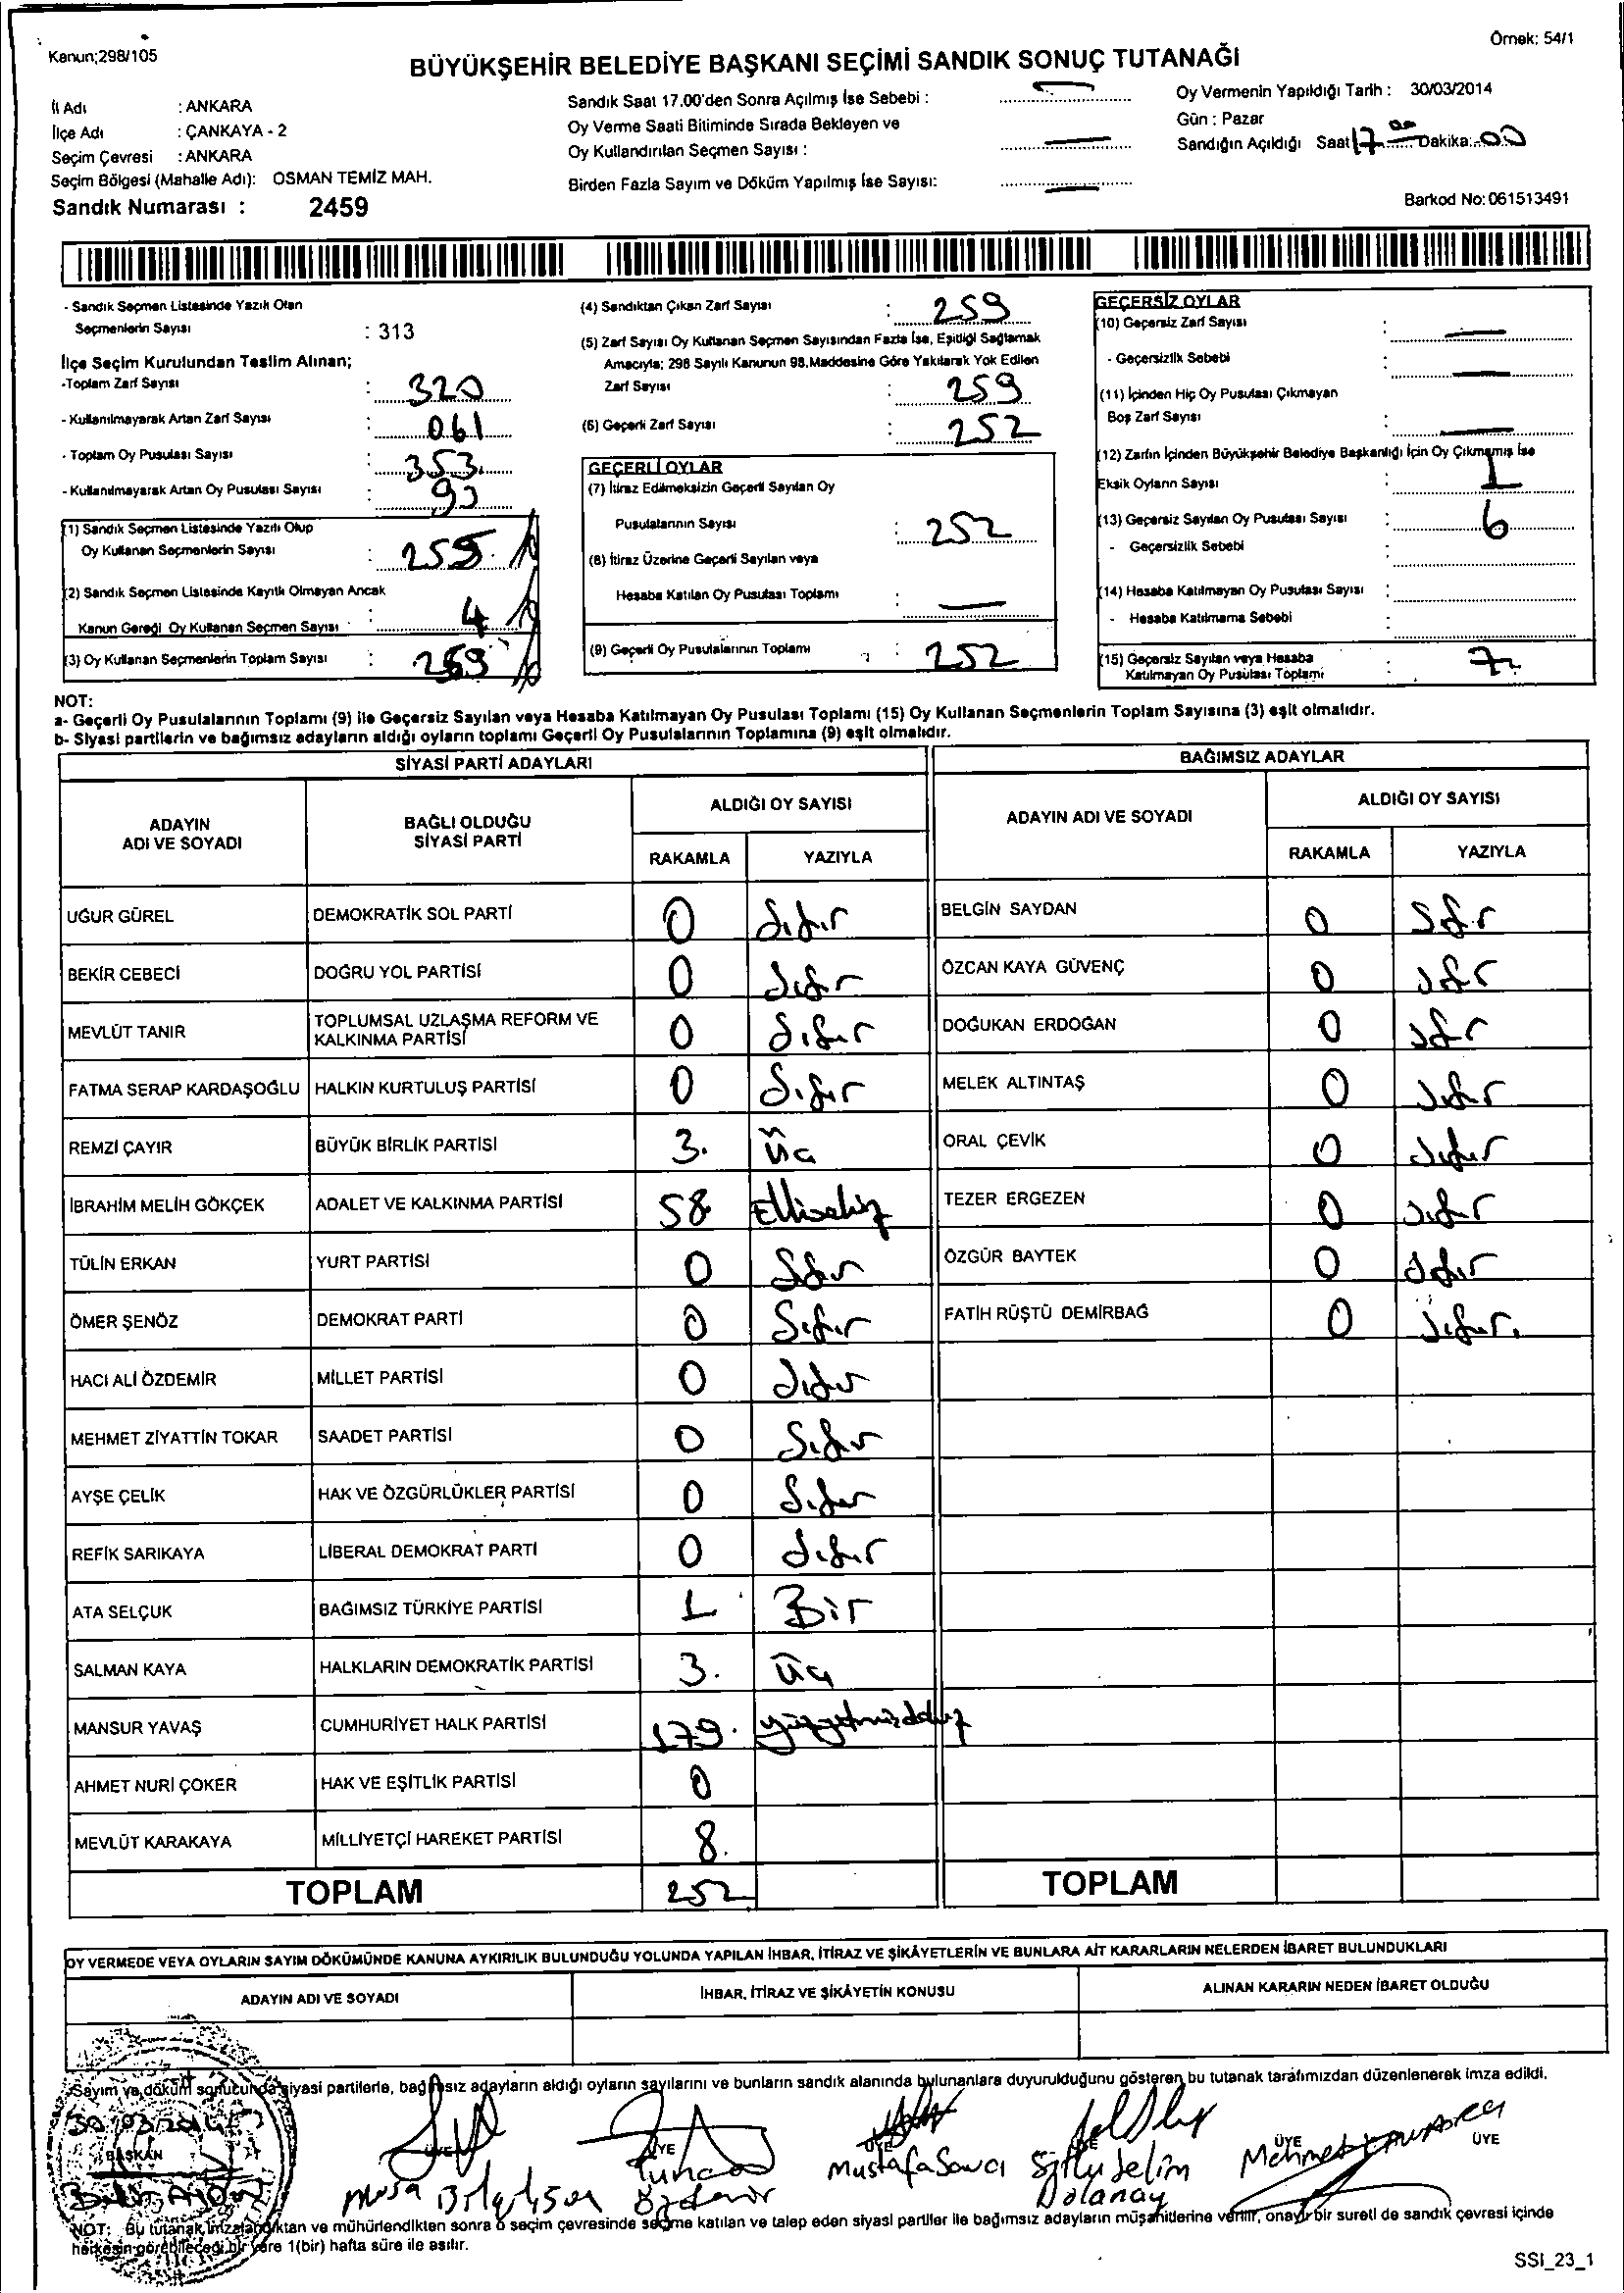 Kanun;298/105
Örnek: 54/1
BÜYÜKŞEHİR BELEDİYE BAŞKANI SEÇİMİ SANDIK SONUÇ TUTANAĞI
İl Adı : ANKARA
İlçe Adı : ÇANKAYA - 2
Seçim Çevresi : ANKARA
Seçim Bölgesi (Mahalle Adı): OSMAN TEMİZ MAH.
Sandık Numarası : 2459
Sandık Saat 17.00'den Sonra Açılmış İse Sebebi :
Oy Verme Saati Bitiminde Sırada Bekleyen ve
Oy Kullandırılan Seçmen Sayısı :
Birden Fazla Sayım ve Döküm Yapılmış İse Sayısı:
Oy Vermenin Yapıldığı Tarih : 30/03/2014
Gün : Pazar
Sandığın Açıldığı Saat 17 00 Dakika: 00
Barkod No: 061513491
- Sandık Seçmen Listesinde Yazılı Olan
Seçmenlerin Sayısı : 313
İlçe Seçim Kurulundan Teslim Alınan;
-Toplam Zarf Sayısı : 320
- Kullanılmayarak Artan Zarf Sayısı : 061
- Toplam Oy Pusulası Sayısı : 353
- Kullanılmayarak Artan Oy Pusulası Sayısı :
(1) Sandık Seçmen Listesinde Yazılı Olup
Oy Kullanan Seçmenlerin Sayısı : 255
(2) Sandık Seçmen Listesinde Kayıtlı Olmayan Ancak
Kanun Gereği Oy Kullanan Seçmen Sayısı : 4
(3) Oy Kullanan Seçmenlerin Toplam Sayısı : 259
(4) Sandıktan Çıkan Zarf Sayısı : 259
(5) Zarf Sayısı Oy Kullanan Seçmen Sayısından Fazla İse, Eşitliği Sağlamak
Amacıyla; 298 Sayılı Kanunun 98.Maddesine Göre Yakılarak Yok Edilen
Zarf Sayısı : 259
(6) Geçerli Zarf Sayısı : 252
GEÇERLİ OYLAR
(7) İtiraz Edilmeksizin Geçerli Sayılan Oy
Pusulalarının Sayısı : 252
(8) İtiraz Üzerine Geçerli Sayılan veya
Hesaba Katılan Oy Pusulası Toplamı : —
(9) Geçerli Oy Pusulalarının Toplamı : 252
GEÇERSİZ OYLAR
(10) Geçersiz Zarf Sayısı : —
- Geçersizlik Sebebi : —
(11) İçinden Hiç Oy Pusulası Çıkmayan
Boş Zarf Sayısı : —
(12) Zarfın İçinden Büyükşehir Belediye Başkanlığı İçin Oy Çıkmamış İse
Eksik Oyların Sayısı : 1
(13) Geçersiz Sayılan Oy Pusulası Sayısı : 6
- Geçersizlik Sebebi :
(14) Hesaba Katılmayan Oy Pusulası Sayısı :
- Hesaba Katılmama Sebebi :
(15) Geçersiz Sayılan veya Hesaba
Katılmayan Oy Pusulası Toplamı : 7
NOT:
a- Geçerli Oy Pusulalarının Toplamı (9) ile Geçersiz Sayılan veya Hesaba Katılmayan Oy Pusulası Toplamı (15) Oy Kullanan Seçmenlerin Toplam Sayısına (3) eşit olmalıdır.
b- Siyasi partilerin ve bağımsız adayların aldığı oyların toplamı Geçerli Oy Pusulalarının Toplamına (9) eşit olmalıdır.
SİYASİ PARTİ ADAYLARI
ADAYIN ADI VE SOYADI BAĞLI OLDUĞU SİYASİ PARTİ ALDIĞI OY SAYISI
RAKAMLA YAZIYLA
UĞUR GÜREL DEMOKRATİK SOL PARTİ 0 Sıfır
BEKİR CEBECİ DOĞRU YOL PARTİSİ 0 Sıfır
MEVLÜT TANIR TOPLUMSAL UZLAŞMA REFORM VE KALKINMA PARTİSİ 0 Sıfır
FATMA SERAP KARDAŞOĞLU HALKIN KURTULUŞ PARTİSİ 0 Sıfır
REMZİ ÇAYIR BÜYÜK BİRLİK PARTİSİ 3. Üç
İBRAHİM MELİH GÖKÇEK ADALET VE KALKINMA PARTİSİ 58 Ellisekiz
TÜLİN ERKAN YURT PARTİSİ 0 Sıfır
ÖMER ŞENÖZ DEMOKRAT PARTİ 0 Sıfır
HACI ALİ ÖZDEMİR MİLLET PARTİSİ 0 Sıfır
MEHMET ZİYATTİN TOKAR SAADET PARTİSİ 0 Sıfır
AYŞE ÇELİK HAK VE ÖZGÜRLÜKLER PARTİSİ 0 Sıfır
REFİK SARIKAYA LİBERAL DEMOKRAT PARTİ 0 Sıfır
ATA SELÇUK BAĞIMSIZ TÜRKİYE PARTİSİ 1 Bir
SALMAN KAYA HALKLARIN DEMOKRATİK PARTİSİ 3. Üç
MANSUR YAVAŞ CUMHURİYET HALK PARTİSİ 179. yüzyetmişdokuz
AHMET NURİ ÇOKER HAK VE EŞİTLİK PARTİSİ 0
MEVLÜT KARAKAYA MİLLİYETÇİ HAREKET PARTİSİ 8.
TOPLAM 252
BAĞIMSIZ ADAYLAR
ADAYIN ADI VE SOYADI ALDIĞI OY SAYISI
RAKAMLA YAZIYLA
BELGİN SAYDAN 0 Sıfır
ÖZCAN KAYA GÜVENÇ 0 Sıfır
DOĞUKAN ERDOĞAN 0 Sıfır
MELEK ALTINTAŞ 0 Sıfır
ORAL ÇEVİK 0 Sıfır
TEZER ERGEZEN 0 Sıfır
ÖZGÜR BAYTEK 0 Sıfır
FATİH RÜŞTÜ DEMİRBAĞ 0 Sıfır.
TOPLAM
OY VERMEDE VEYA OYLARIN SAYIM DÖKÜMÜNDE KANUNA AYKIRILIK BULUNDUĞU YOLUNDA YAPILAN İHBAR, İTİRAZ VE ŞİKÂYETLERİN VE BUNLARA AİT KARARLARIN NELERDEN İBARET BULUNDUKLARI
ADAYIN ADI VE SOYADI İHBAR, İTİRAZ VE ŞİKÂYETİN KONUSU ALINAN KARARIN NEDEN İBARET OLDUĞU
Sayım ve döküm sonucunda siyasi partilerle, bağımsız adayların aldığı oyların sayılarını ve bunların sandık alanında bulunanlara duyurulduğunu gösteren bu tutanak tarafımızdan düzenlenerek imza edildi.
30/03/2014
BAŞKAN ÜYE ÜYE ÜYE ÜYE ÜYE ÜYE
Musa Tuncay Özdemir Mustafa Savcı Sıtkı Selim Dolanay Mehmet
NOT: Bu tutanak imzalandıktan ve mühürlendikten sonra o seçim çevresinde seçime katılan ve talep eden siyasi partiler ile bağımsız adayların müşahitlerine verilir, onaylı bir sureti de sandık çevresi içinde
herkesin görebileceği bir yere 1(bir) hafta süre ile asılır.
SSI_23_1